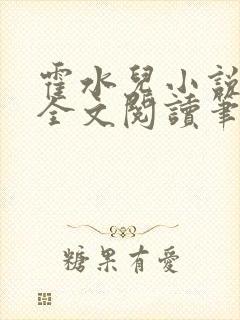 霍水兒小說
全文閱讀筆
糖果有愛